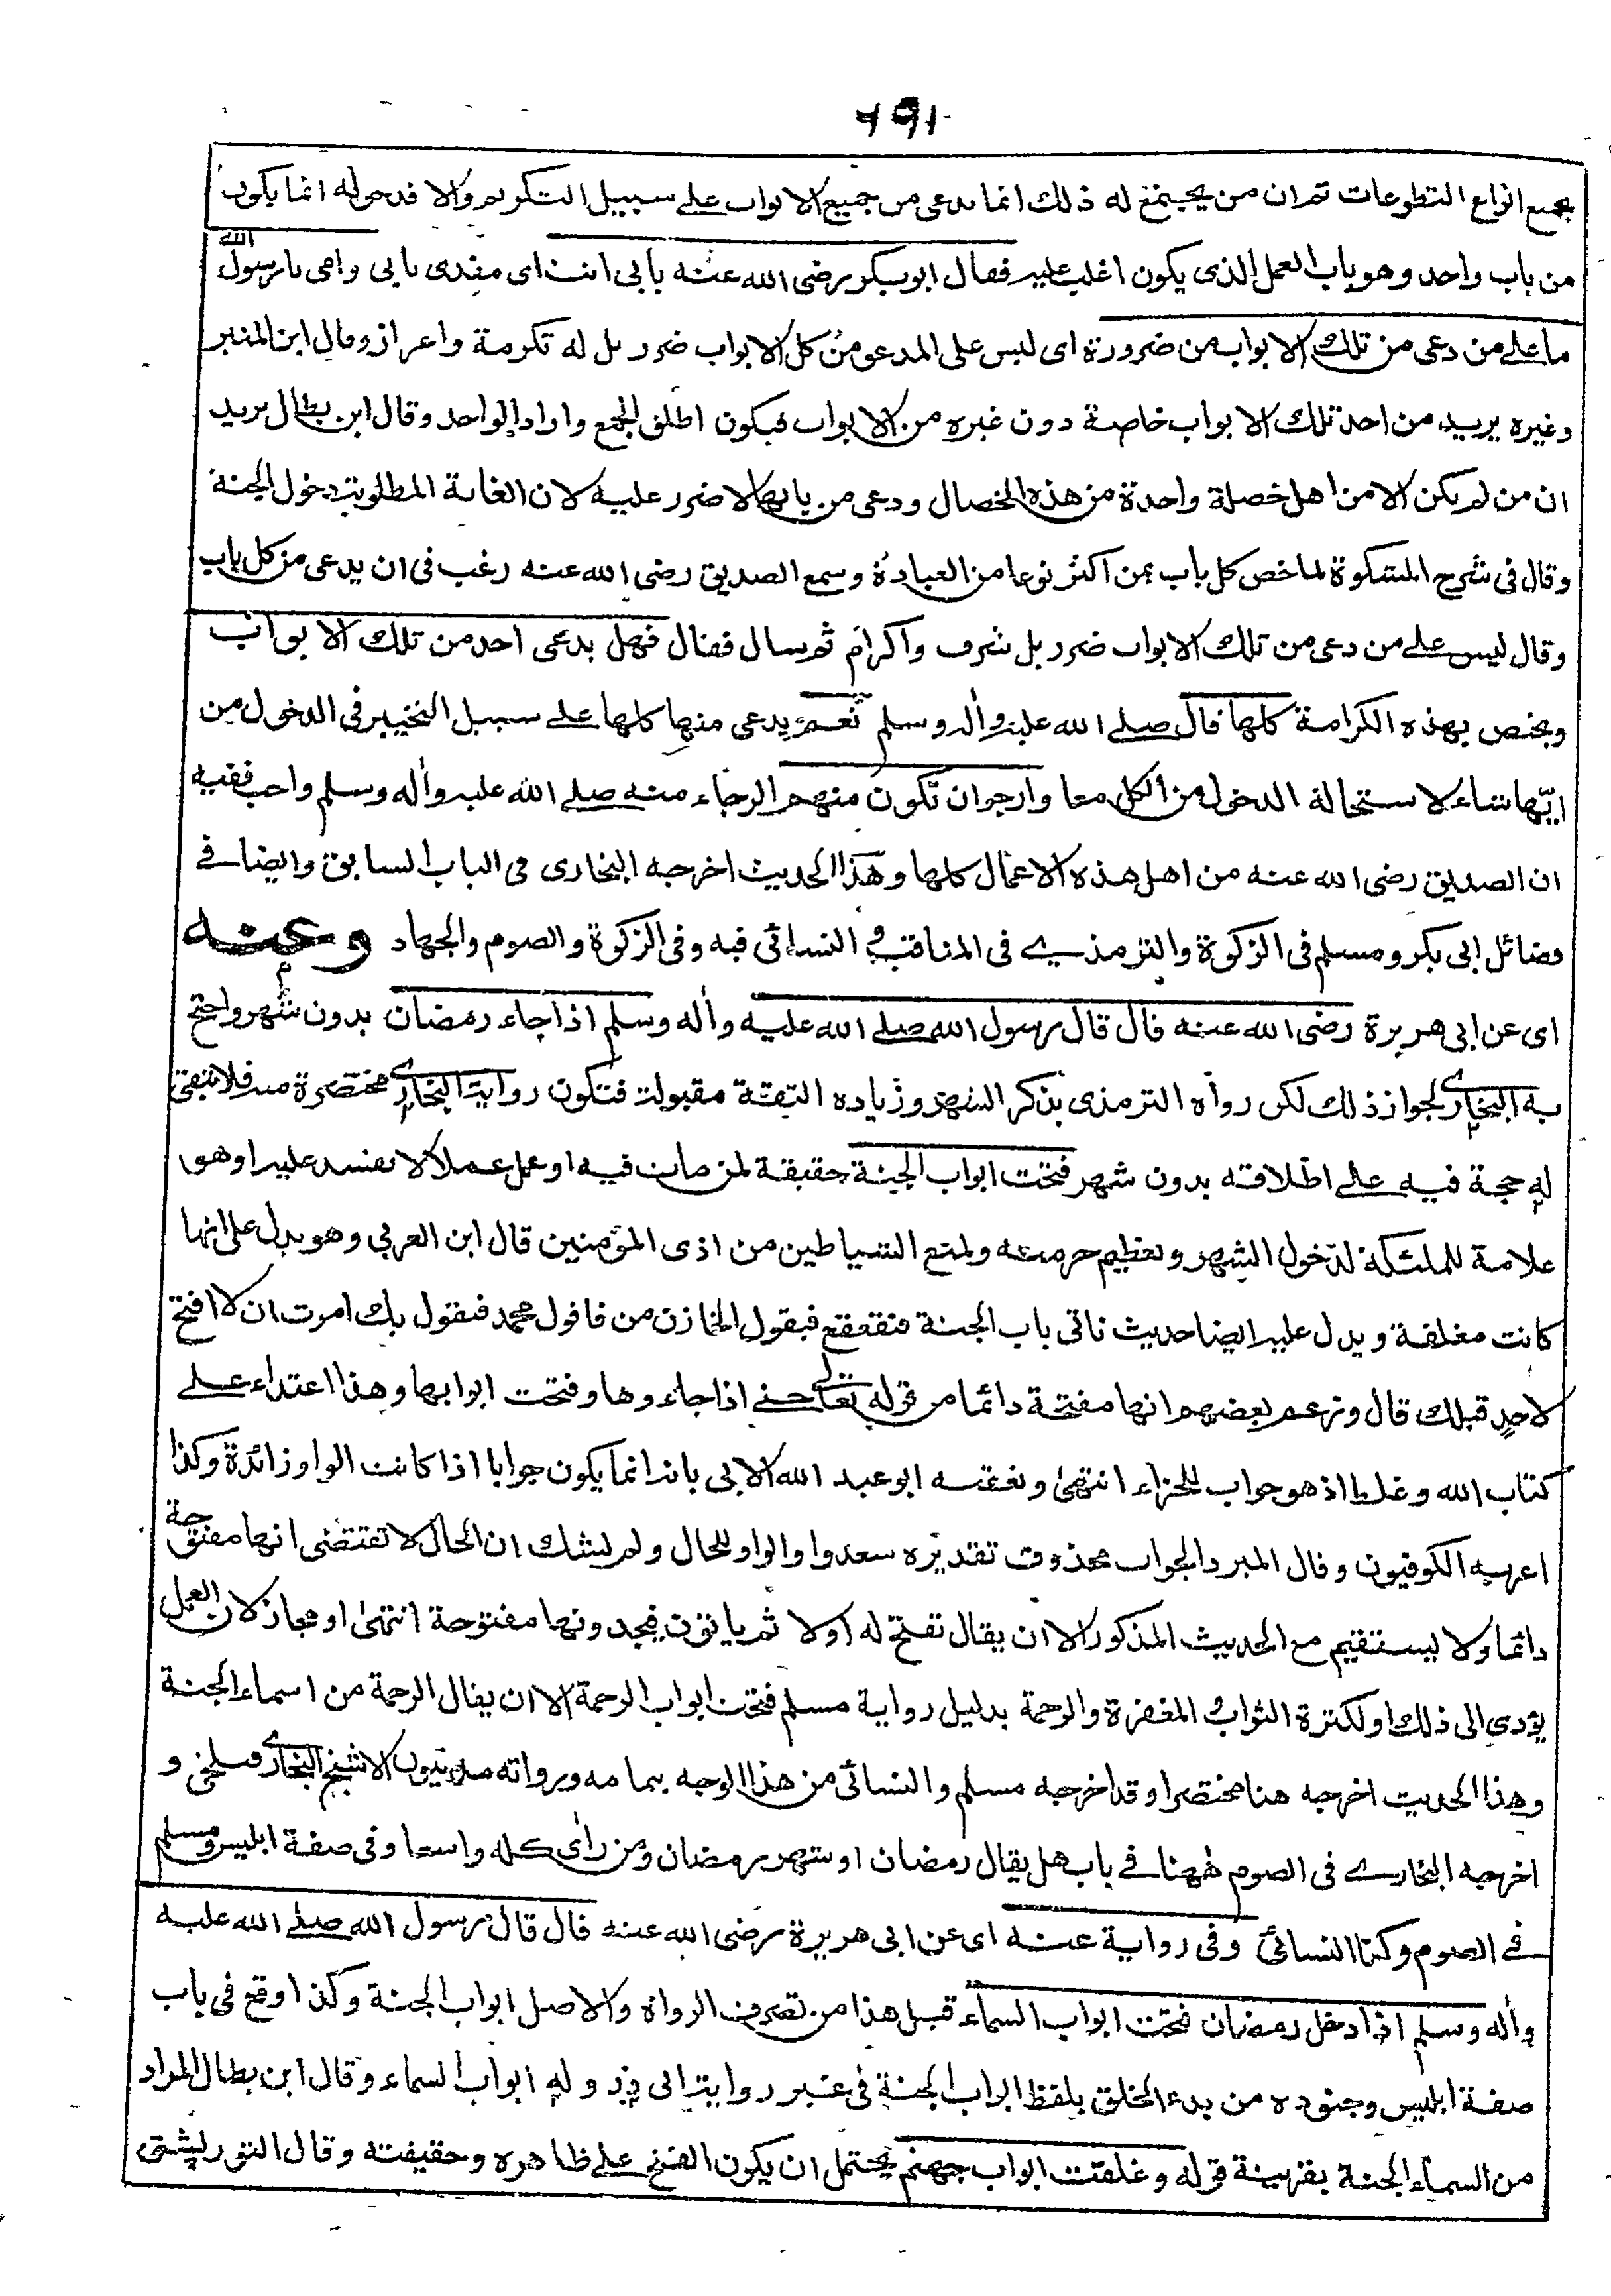 ٦٩١
بجميع انواع التطوعات ثم ان من يجتمع له ذلك انما يدعى من جميع الابواب على سبيل التكريم والا فدخوله انما يكون
من باب واحد وهو باب العمل الذى يكون اغلب عليه فقال ابوبكر رضى الله عنه بابى انت اى مفدى بابى وامى يا رسول الله
ما على من دعى من تلك الابواب من ضرورة اى ليس على المدعو من كل الابواب ضرر بل له تكرمة واعزاز وقال ابن المنير
وغيره يريد من احد تلك الابواب خاصة دون غيره من الابواب فيكون اطلق الجمع واراد الواحد وقال ابن بطال يريد
ان من لم يكن الا من اهل خصلة واحدة من هذه الخصال ودعى من بابها لا ضرر عليه لان الغاية المطلوبة دخول الجنة
وقال فى شرح المشكوة لما خص كل باب بمن اكثر نوعا من العبادة وسمع الصديق رضى الله عنه رغب فى ان يدعى من كل باب
وقال ليس على من دعى من تلك الابواب ضرر بل شرف واكرام ثم سال فقال فهل يدعى احد من تلك الابواب
ويختص بهذه الكرامة كلها قال صلى الله عليه واله وسلم نعم يدعى منها كلها على سبيل التخيير فى الدخول من
ايّها شاء لاستحالة الدخول من الكل معا وارجو ان تكون منهم الرجاء منه صلى الله عليه واله وسلم واجب ففيه
ان الصديق رضى الله عنه من اهل هذه الاعمال كلها وهذا الحديث اخرجه البخارى فى الباب السابق وايضا فى
فضائل ابى بكر ومسلم فى الزكوة والترمذى فى المناقب والنسائى فيه وفى الزكوة والصوم والجهاد وعنه
اى عن ابى هريرة رضى الله عنه قال قال رسول الله صلى الله عليه واله وسلم اذا جاء رمضان بدون شهر واحتج
به البخارى لجواز ذلك لكن رواه الترمذى بذكر الشهر وزيادة الثقة مقبولة فتكون رواية البخارى مختصرة منه فلا تبقى
له حجة فيه على اطلاقه بدون شهر فتحت ابواب الجنة حقيقة لمن مات فيه او عمل عملا لا يفسد عليه او هو
علامة للملئكة لدخول الشهر وتعظيم حرمته ولمنع الشياطين من اذى المؤمنين قال ابن العربي وهو يدل على انها
كانت مغلقة ويدل عليه ايضا حديث ناتى باب الجنة فنقعقع فيقول الخازن من فاقول محمد فيقول بك امرت ان لا افتح
لاحد قبلك قال وزعم بعضهم انها مفتحة دائما من قوله تعالى حتى اذا جاءوها وفتحت ابوابها وهذا اعتداء على
كتاب الله وغلط اذ هو جواب للجزاء انتهى وتعقبه ابو عبد الله الابى بانه انما يكون جوابا اذا كانت الواو زائدة وكذا
اعربه الكوفيون وقال المبرد الجواب محذوف تقديره سعدوا والواو للحال ولم يشك ان الحال لا تقتضى انها مفتوحة
دائما ولا يستقيم مع الحديث المذكور الا ان يقال تفتح له اولا ثم ياتون فيجدونها مفتوحة انتهى او مجاز لان العمل
يؤدى الى ذلك او لكثرة الثواب المغفرة والرحمة بدليل رواية مسلم فتحت ابواب الرحمة الا ان يقال الرحمة من اسماء الجنة
وهذا الحديث اخرجه هنا مختصرا وقد اخرجه مسلم والنسائى من هذا الوجه بتمامه ورواته مدنيون الا شيخ البخارى فبلخى و
اخرجه البخارى فى الصوم ههنا فى باب هل يقال رمضان او شهر رمضان ومن راى كله واسعا وفى صفة ابليس ومسلم
فى الصوم وكذا النسائى وفى رواية عنه اى عن ابى هريرة رضى الله عنه قال قال رسول الله صلى الله عليه
واله وسلم اذا دخل رمضان فتحت ابواب السماء قيل هذا من تصرف الرواة والاصل ابواب الجنة وكذا وقع فى باب
صفة ابليس وجنوده من بدء الخلق بلفظ ابواب الجنة فى غير رواية ابى ذر وله ابواب السماء وقال ابن بطال المراد
من السماء الجنة بقرينة قوله وغلقت ابواب جهنم يحتمل ان يكون الفتح على ظاهره وحقيقته وقال التوربشتى